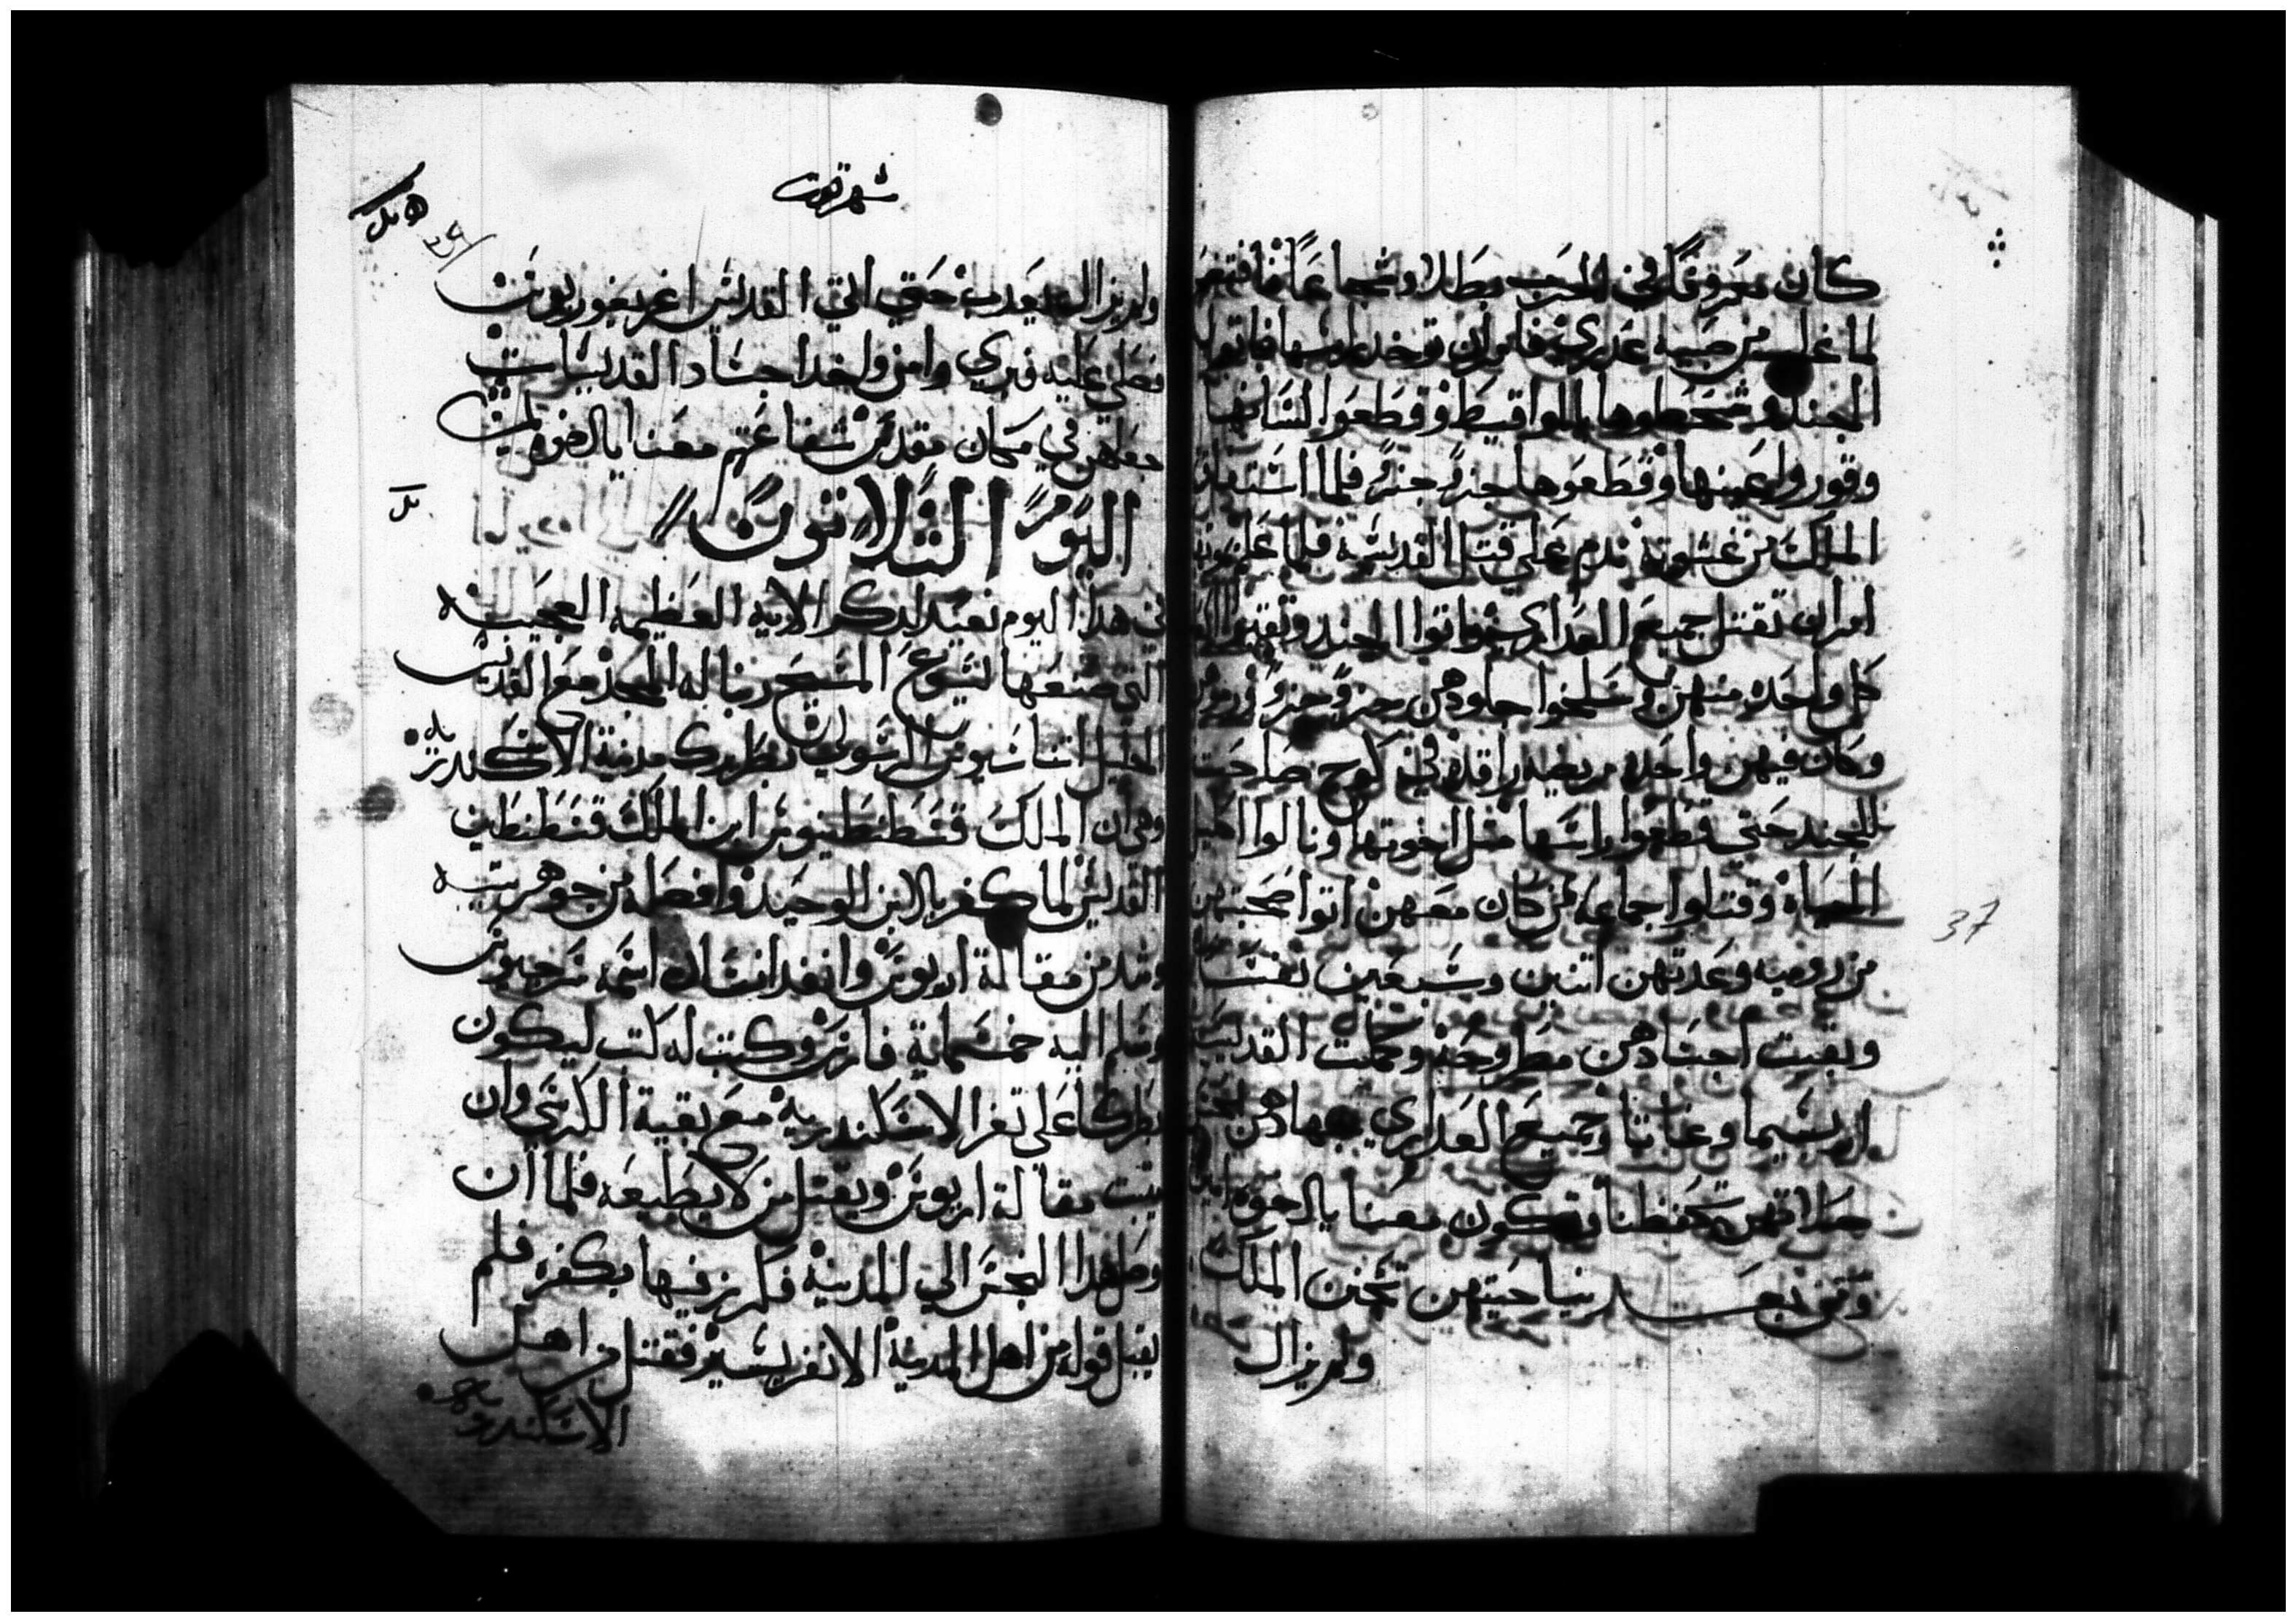 كان معروفا في الحرب بطلا وشجاعا فافتهر
لما غلب من صبيه عدري فامر ان توخد راسها فاتوا
الجند و شحطوها بالمواقيط وقطعوا لسانها
وقوروا عينها وقطعوها جزو جزو فلما استفاق
الملك من غشوته ندم علي قتل القديسه فلما علم
امر ان تقتل جميع العداري فاتوا الجند وتقتلوا
كل واحده منهن وسلخوا جلودهن جزو جزو
وكان فيهن واحده مريضه راقده في كوخ صاحت
بالجند حتي قطعوا راسها مثل اخوتها ونالوا
الحياه وقتلوا جماعه من كان معهن اتوا صحبتهن
من روميه وعدتهن اتنين وسبعين نفسا
وبقيت اجسادهن مطروحه وكملت القديسه
اربسيما وغاتا وجميع العداري جهادهن
صلاتهن تحفظنا وتكون معنا بالحقوه امين
ومن بعد نياحتهن تجنن الملك
ولم يزال
شهر توت
37
ولم يزال يعدب حتي اتي القديس اغريغوريوس
فصلي عليه فبري وامن واخد اجساد القديسات
جعلهن في مكان مقدس شفاعتهم معنا يالاخوه امين
اليوم التلاتون
في هدا اليوم نعيد لدكر الايه العظيمه العجيبه
التي صنعها يسوع المسيح ربنا له المجد مع القديس
الجليل اتناسيوس الرسولي بطريرك مدينة الاسكندريه
وهي ان الملك قسطنطينوس ابن الملك قسطنطين
القديس لما كفر بالابن الوحيد وافصله من جوهريته
وشد من مقالة اريوس وانفد انسان اسمه سرجيوس
وسلم اليه خمسماية فارس وكتب له كتب ليكون
بطركا علي تغر الاسكندريه مع بقية الكرسي وان
يتبت مقالة اريوس ويقتل من لا يطيعه فلما ان
وصل هدا النجس الي المدينه فكرز فيها بكفره فلم
يقبل قوله من اهل المدينه الا نفر يسير فقتل من اهل
الاسكندريه